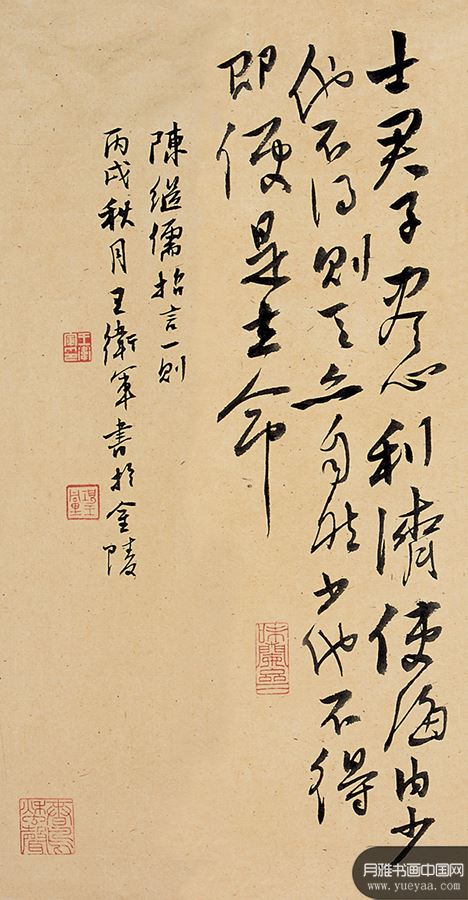 士君子尽心利濟使海内少
他不得则天亦自然少他不得
即便是立命
陳継儒格言一则
丙戌秋月王衛軍書於金陵
月雅书画中国网
www.yueyaa.com